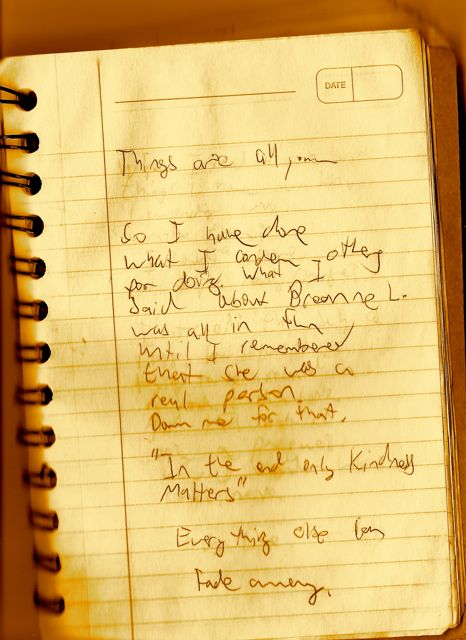 DATE
Things are all,
So I have done
what I condem others
for doing. What I
Said about Breanne L.
was all in fun
until I remembered
that she was a
real person.
Damn me for that.
"In the end only Kindness
Matters"
Everything else can
Fade away.